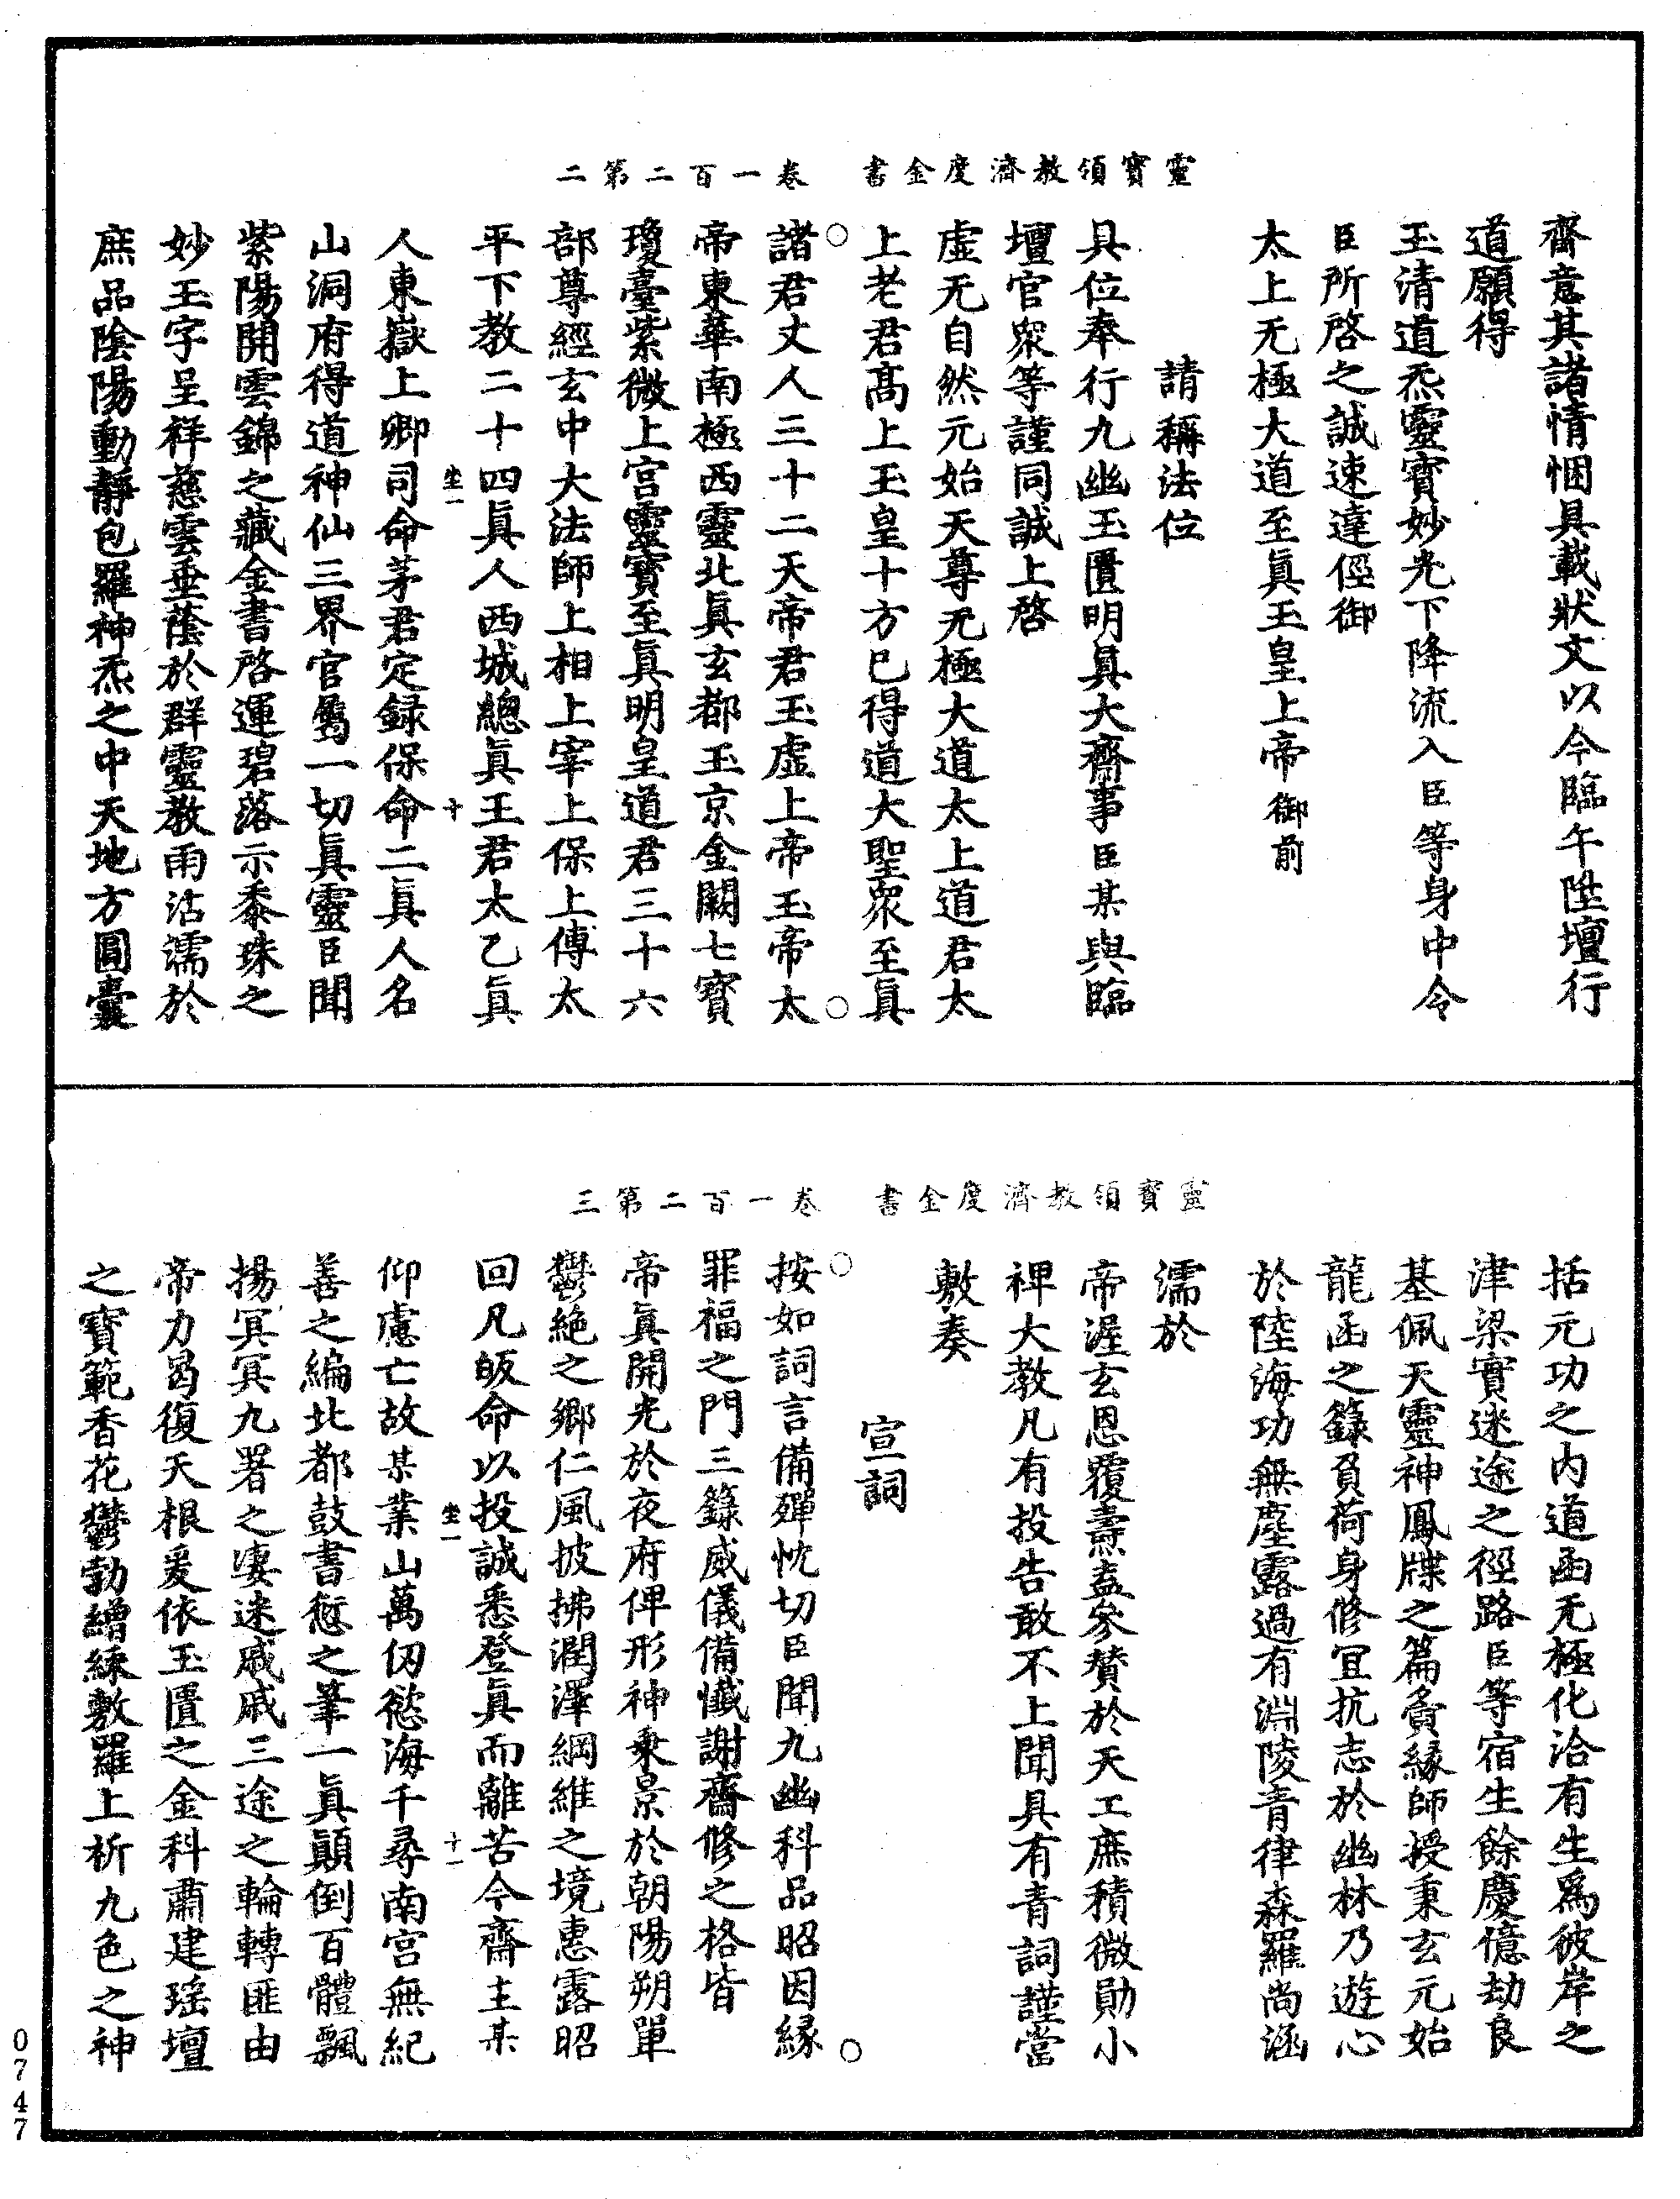 靈寶領教濟度金書 卷一百二第二
齋意其諸情悃具載狀文以今臨午陞壇行
道願得
玉清道炁靈寶妙光下降流入臣等身中令
臣所啓之誠速達徑御
太上无極大道至眞玉皇上帝御前
請稱法位
具位奉行九幽玉匱明眞大齋事臣某與臨
壇官衆等謹同誠上啓
虛无自然元始天尊无極大道太上道君太
上老君高上玉皇十方已得道大聖衆至眞
諸君丈人三十二天帝君玉虛上帝玉帝太
帝東華南極西靈北眞玄都玉京金闕七寶
瓊臺紫微上宮靈寶至眞明皇道君三十六
部尊經玄中大法師上相上宰上保上傅太
平下教二十四眞人西城總眞王君太乙眞
坐一 十
人東嶽上卿司命茅君定録保命二眞人名
山洞府得道神仙三界官屬一切眞靈臣聞
紫陽開雲錦之藏金書啓運碧落示黍珠之
妙玉字呈祥慈雲垂蔭於群靈教雨沾濡於
庶品陰陽動靜包羅神炁之中天地方圓囊
靈寶領教濟度金書 卷一百二第三
括元功之內道函无極化洽有生爲彼岸之
津梁實迷途之徑路臣等宿生餘慶億劫良
基佩天靈神鳳牒之篇夤緣師授秉玄元始
龍函之籙負荷身修宜抗志於幽林乃遊心
於陸海功無塵露過有淵陵青律森羅尚涵
濡於
帝渥玄恩覆燾盍參賛於天工庶積微勛小
裨大教凡有投告敢不上聞具有青詞謹當
敷奏
宣詞
按如詞言備殫忱切臣聞九幽科品昭因緣
罪福之門三籙威儀備懺謝齋修之格皆
帝眞開光於夜府俾形神乗景於朝陽朔單
鬱絶之鄉仁風披拂潤澤綱維之境惠露昭
回凡皈命以投誠悉登眞而離苦今齋主某
坐一 十一
仰慮亡故某業山萬仭慾海千尋南宮無紀
善之編北都鼓書愆之筆一眞顚倒百體飄
揚冥冥九署之凄迷戚戚三途之輪轉匪由
帝力曷復天根爰依玉匱之金科肅建瑶壇
之寶範香花鬱勃繒綵敷羅上祈九色之神
0747